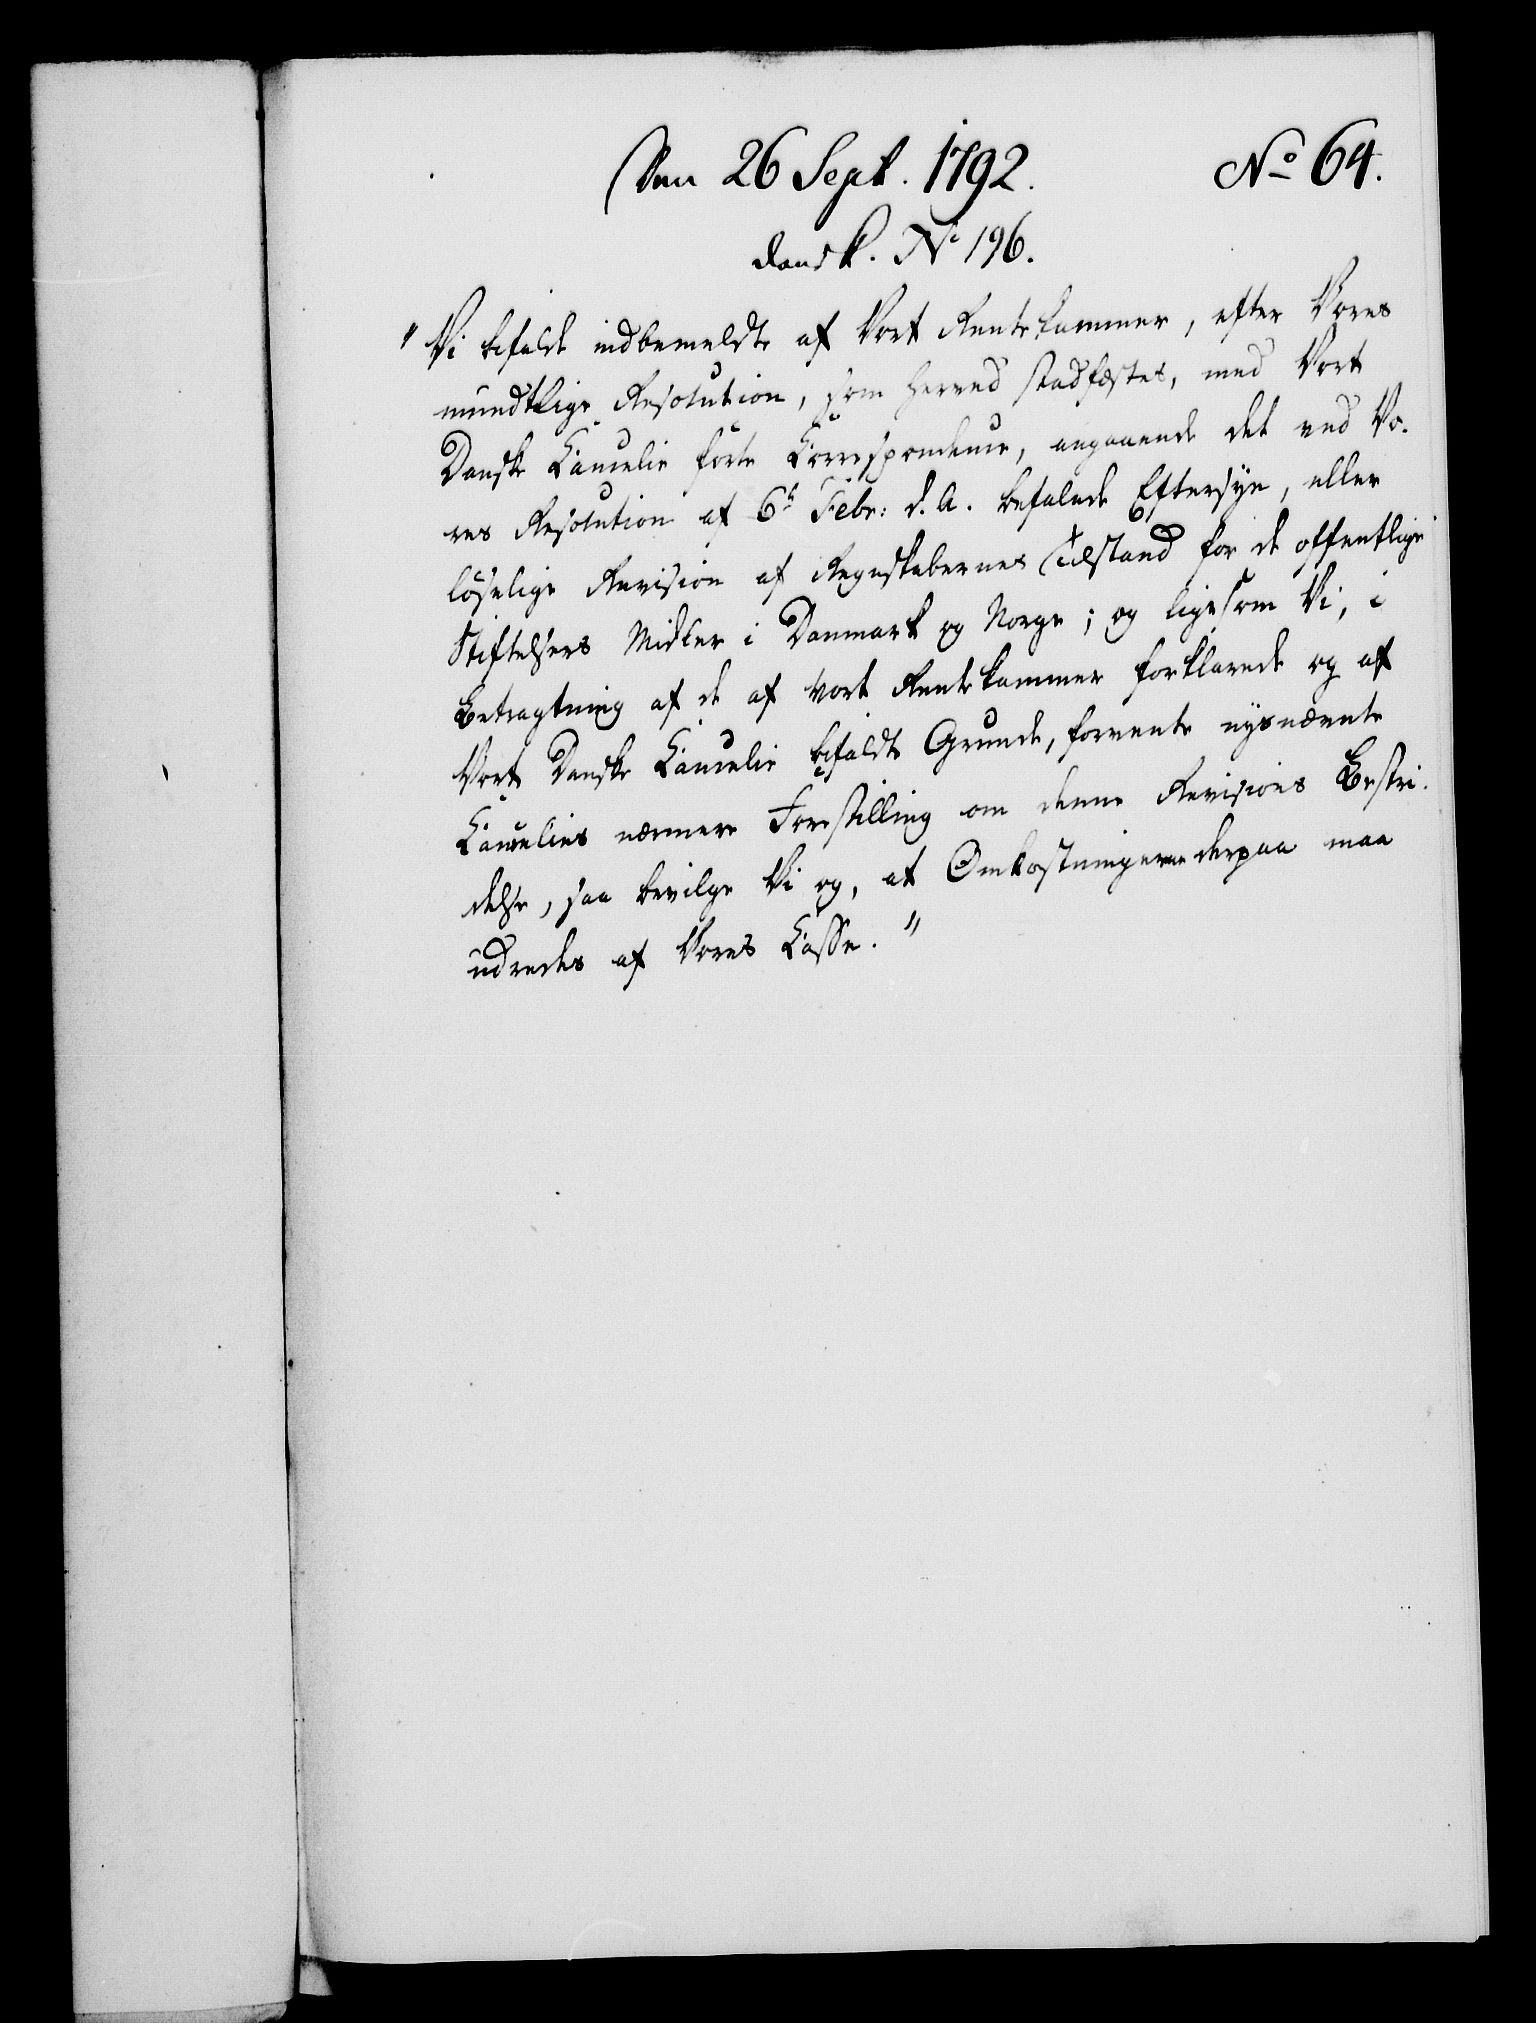 Den 26 Sept. 1792. No 64.
dansk. No 196.
"Vi bifalde indbemeldte af Vort Rentekammer, efter Vores
mundtlige Resolution, som herved stadfæstes, med Vort
Danske Cancelie førte Correspondence, angaaende det ved Vo-
res Resolution af 6te Febr: d. A. befalede Eftersyn, eller
løselige Revision af Regnskabernes Tilstand for de offentlige
Stiftelsers Midler i Danmark og Norge; og ligesom Vi, i
Betragtning af de af Vort Rentekammer forklarede og af
Vort Danske Cancelie bifaldte Grunde, forvente nysnævnte
Cancelies nærmere Forestilling om denne Revisions Bestri-
delse, saa bevilge Vi og, at Omkostningerne derpaa maa
udredes af Vores Casse."